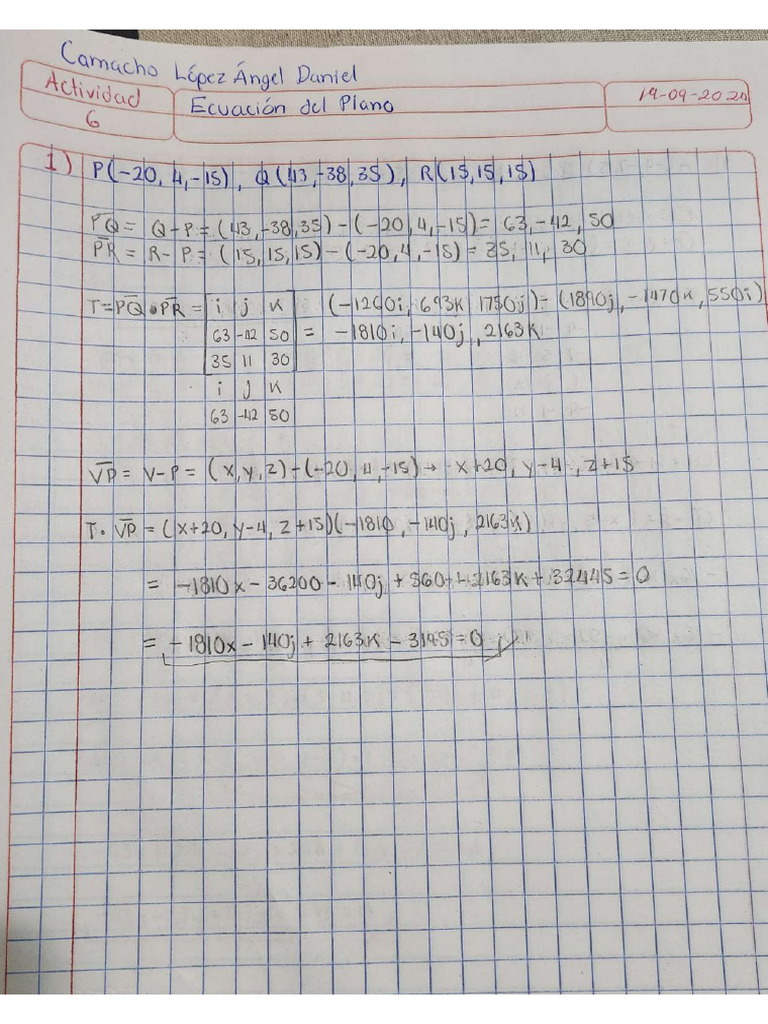 Camacho López Ángel Daniel
Actividad 6
Ecuación del Plano
19-09-2024
1) P(-20, 4, -15), Q(43, -38, 35), R(15, 15, 15)
PQ = Q-P = (43, -38, 35) - (-20, 4, -15) = 63, -42, 50
PR = R-P = (15, 15, 15) - (-20, 4, -15) = 35, 11, 30
T = PQ • PR = i j k (-1260i, 693k 1750j) - (1890j, -1470k, 550i)
63 -42 50 = -1810i, -140j, 2163k
35 11 30
i j k
63 -42 50
VP = V-P = (x, y, z) - (-20, 4, -15) → x+20, y-4, z+15
T • VP = (x+20, y-4, z+15)(-1810, -140j, 2163k)
= -1810x - 36200 - 140j + 560 + 2163k + 32445 = 0
= -1810x - 140j + 2163k - 3195 = 0